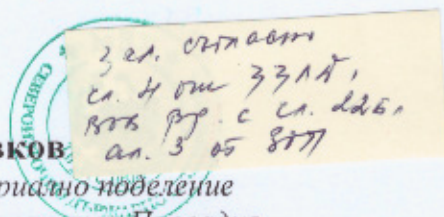 зал. съгласно
чл. 4 от ЗЗЛД,
във вр. с чл. 22б,
ал. 3 от ЗОП
вков
риално поделение